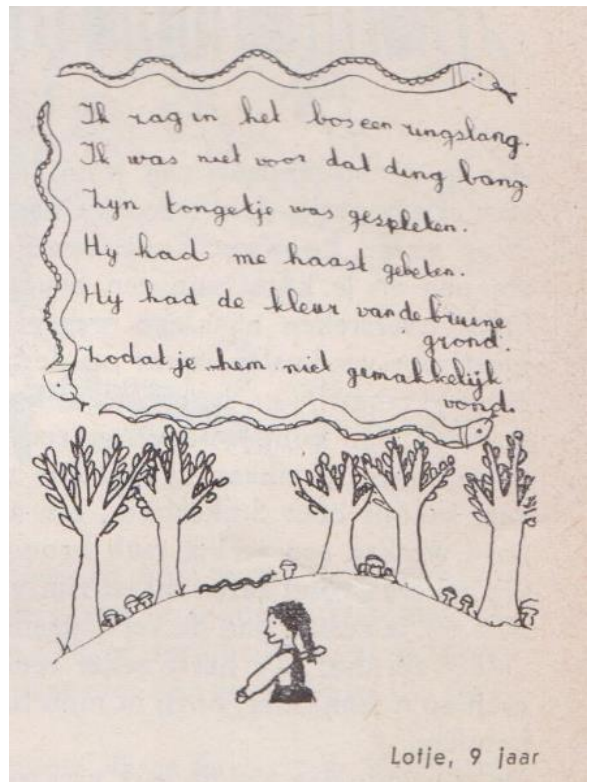 Ik zag in het bos een ringslang.
Ik was niet voor dat ding bang.
Zyn tongetje was gespleten.
Hy had me haast gebeten.
Hij had de kleur van de bruine
grond.
Zodat je hem niet gemakkelijk
vond.
Lotje, 9 jaar